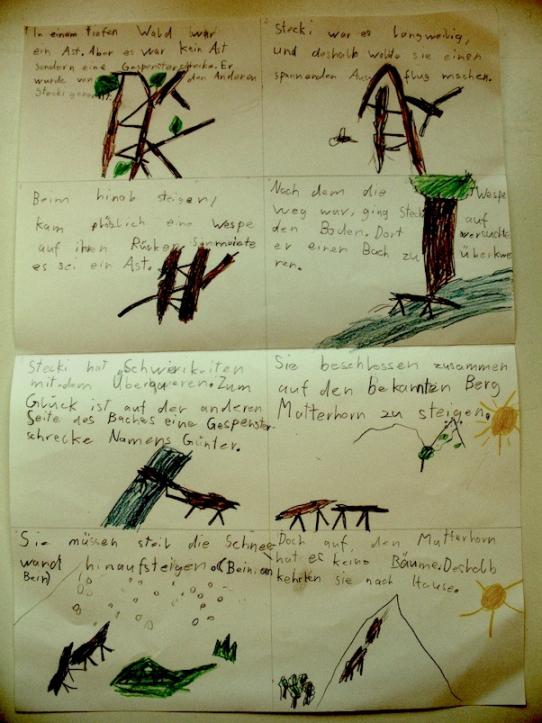 In einem tiefen Wald war
ein Ast. Aber es war kein Ast
sondern eine Gespenstschrecke. Er
wurde von den Anderen
Stecki
Stecki war es langweilig,
und deshalb wolde sie einen
spannenden Ausflug machen.
Beim hinab steigen,
kam plözlich eine Wespe
auf ihren Rücken. Sie meinte
es sei ein Ast.
Nach dem die Wespe
weg war, ging Stecki auf
den Boden. Dort versuchte
er einen Bach zu überkwe
ren.
Stecki hat Schwirikeiten
mit dem Überqueren. Zum
Glück ist auf der anderen
Seite des Baches eine Gespenst-
schrecke Namens Günter.
Sie beschlossen zusammen
auf den bekannten Berg
Matterhorn zu steigen.
Sie müssen steil die Schnee
wand hinaufsteigen. (Bein an
Bein)
Doch auf, den Matterhorn
hat es keine Bäume. Deshalb
kehrten sie nach Hause.